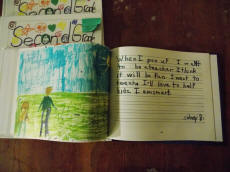 Second Grade
Second Grade
When I grow up I want
to be a teacher I think
it will be fun. I want to
I'll love to help
kids I am smart.